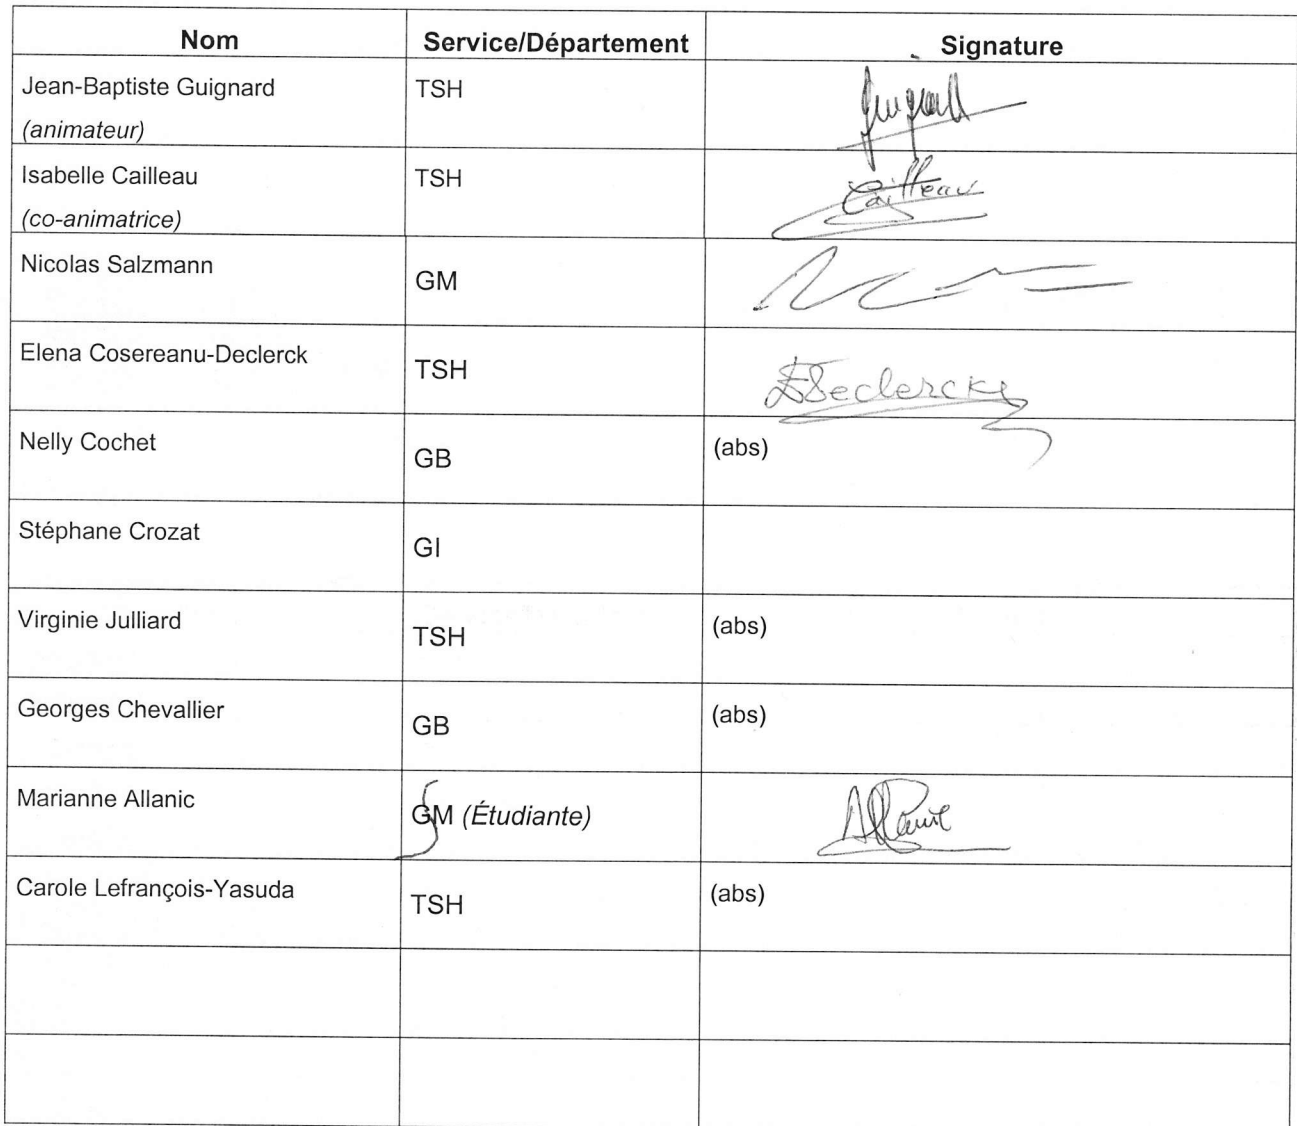 Nom Service/Département Signature
Jean-Baptiste Guignard TSH Guignard
(animateur)
Isabelle Cailleau TSH Cailleau
(co-animatrice)
Nicolas Salzmann
GM
Elena Cosereanu-Declerck
TSH EDeclerck
Nelly Cochet
GB (abs)
Stéphane Crozat
GI
Virginie Julliard
TSH (abs)
Georges Chevallier
GB (abs)
Marianne Allanic
GM (Étudiante) Allanic
Carole Lefrançois-Yasuda
TSH (abs)